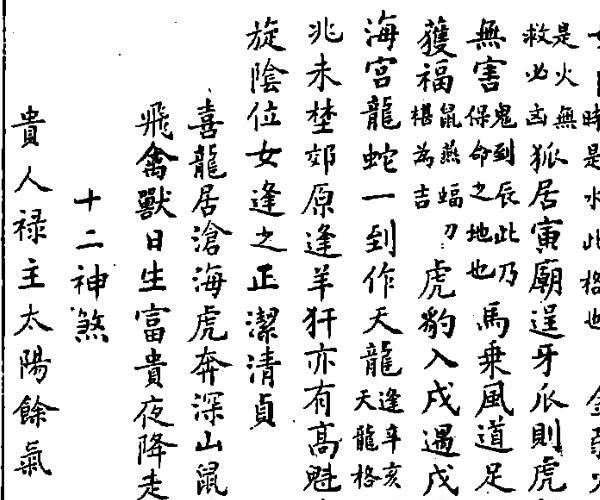 時是水此格也
是火無救必凶狐居寅廟逞牙爪則虎
無害鬼到辰此乃保命之地也馬乘風道足
獲福鼠燕蝠為吉虎豹入戌遇戌
海宮龍蛇一到作天龍逢辛亥天龍格
兆未埜郊原逢羊犴亦有高魁
旋陰位女逢之正潔清貞
喜龍居滄海虎奔深山鼠
飛禽獸日生富貴夜降走
十二神煞
貴人禄主太陽餘氣